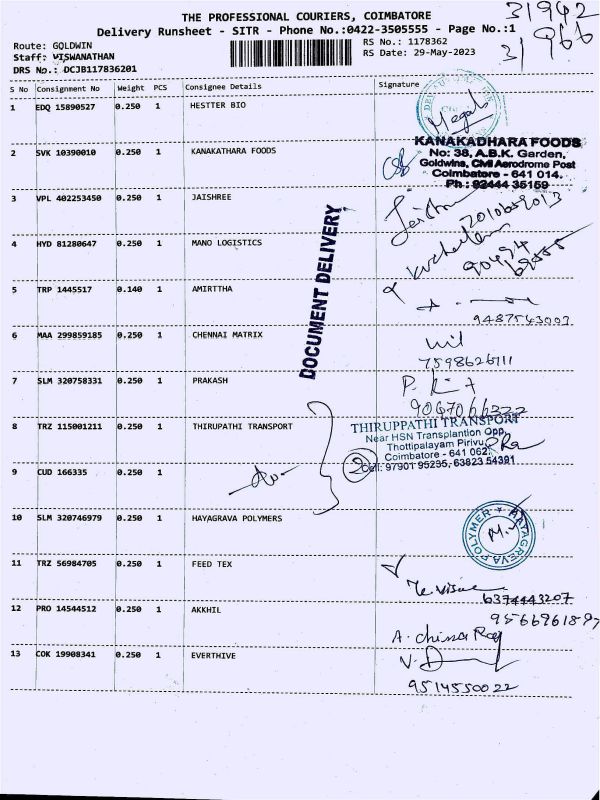 THE PROFESSIONAL COURIERS, COIMBATORE
31942
Delivery Runsheet - SITR - Phone No.:0422-3505555 - Page No.:1
31966
Route: GOLDWIN
RS No.: 1178362
Staff: VISWANATHAN
RS Date: 29-May-2023
DRS No.: DCJB117836201
S No Consignment No Weight PCS Consignee Details Signature
1 EDQ 15890527 0.250 1 HESTTER BIO
Megala
KANAKADHARA FOODS
No: 38, A.B.K. Garden,
Goldwins, Civil Aerodrome Post
Coimbatore - 641 014.
Ph : 92444 35159
2 SVK 10390010 0.250 1 KANAKATHARA FOODS
3 VPL 402253450 0.250 1 JAISHREE
4 HYD 81280647 0.250 1 MANO LOGISTICS
DOCUMENT DELIVERY
5 TRP 1445517 0.140 1 AMIRTTHA
9487543003
6 MAA 299859185 0.250 1 CHENNAI MATRIX
7598626111
7 SLM 320758331 0.250 1 PRAKASH
8 TRZ 115001211 0.250 1 THIRUPATHI TRANSPORT
THIRUPPATHI TRANSPORT
Near HSN Transplantion Opp,
Thottipalayam Pirivu,
Coimbatore - 641 062.
Cell: 97901 95235, 63823 54391
2
9 CUD 166335 0.250 1
10 SLM 320746979 0.250 1 HAYAGRAVA POLYMERS
HAYAGREVA POLYMER
11 TRZ 56984705 0.250 1 FEED TEX
6374443207
12 PRO 14544512 0.250 1 AKKHIL
9566961897
A. Chinna Raj
13 COK 19908341 0.250 1 EVERTHIVE
9514550022